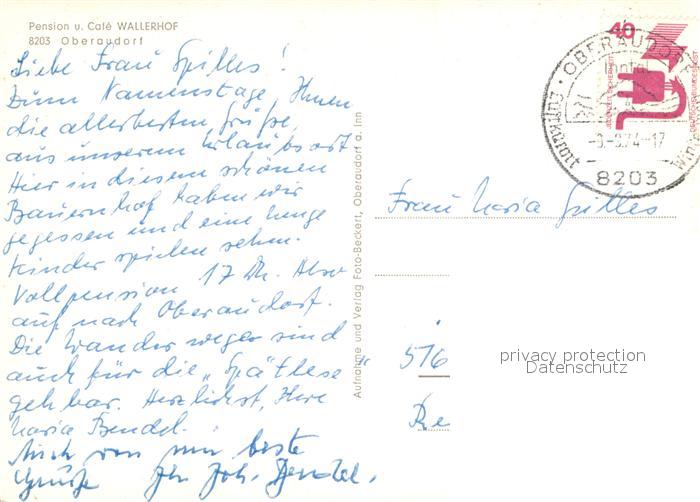 Pension u. Café WALLERHOF
8203 Oberaudorf
Liebe Frau Spilles!
Zum Namenstage Ihnen
die allerbesten Grüße
aus unserem Urlaubsort
Hier in diesem schönen
Bauernhof haben wir
gegessen und eine Menge
Kinder spielen sehn.
Vollpension 17 DM. Also
auf nach Oberaudorf.
Die Wanderwege sind
auch für die „Spätlese"
gehbar. Herzlichst, Ihre
Maria Bendel.
Auch von mir beste
Grüße Ihr Joh. Bendel.
Aufnahme und Verlag Foto-Beckert, Oberaudorf a. Inn
40
JEDERZEIT SICHERHEIT
DEUTSCHE BUNDESPOST
OBERAUDORF
Luftkurort
8203
Frau Maria Spilles
516
privacy protection
Datenschutz